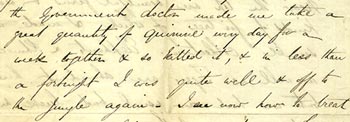 the Government doctor made me take a
great quantity of quinine every day for a
week together & so killed it, & in less than
a fortnight I was quite well & off to
the jungle again – I now how to treat